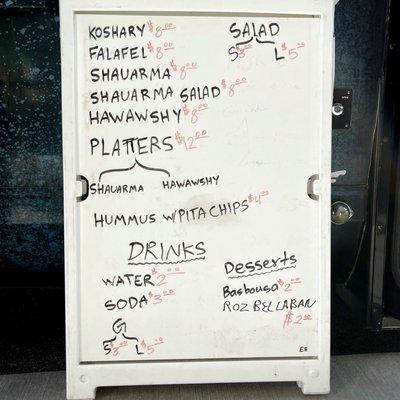 KOSHARY $8.00
FALAFEL $8.00
SHAUARMA $8.00
SHAUARMA SALAD $8.00
HAWAWSHY $8.00
PLATTERS $12.00
SHAUARMA HAWAWSHY
HUMMUS W/PITA CHIPS $4.00
SALAD
S $3.00 L $5.00
DRINKS
WATER $2.00
SODA $3.00
G
S $3.00 L $5.00
Desserts
Basbousa $2.00
ROZ BELLABAN
$2.00